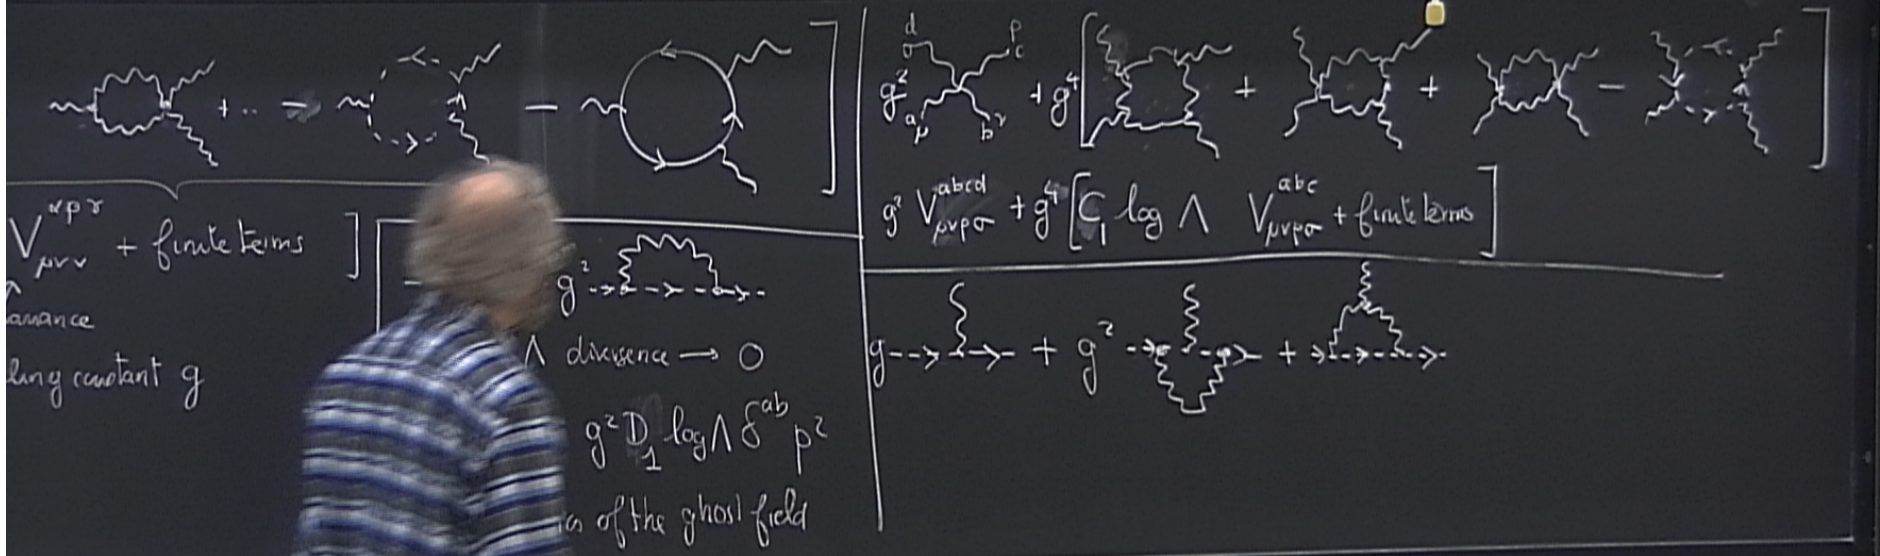 + .. − −
V^{αβγ}_{μνν} + finite terms ]
ling constant g
g²
Λ divergence → 0
g² D₁ log Λ δ^{ab} p²
of the ghost field
g² d σ ρ c a μ b ν + g⁴ [ + + − ]
g² V^{abcd}_{μνρσ} + g⁴ [ C₁ log Λ V^{abc}_{μνρσ} + finite terms ]
g + g² +